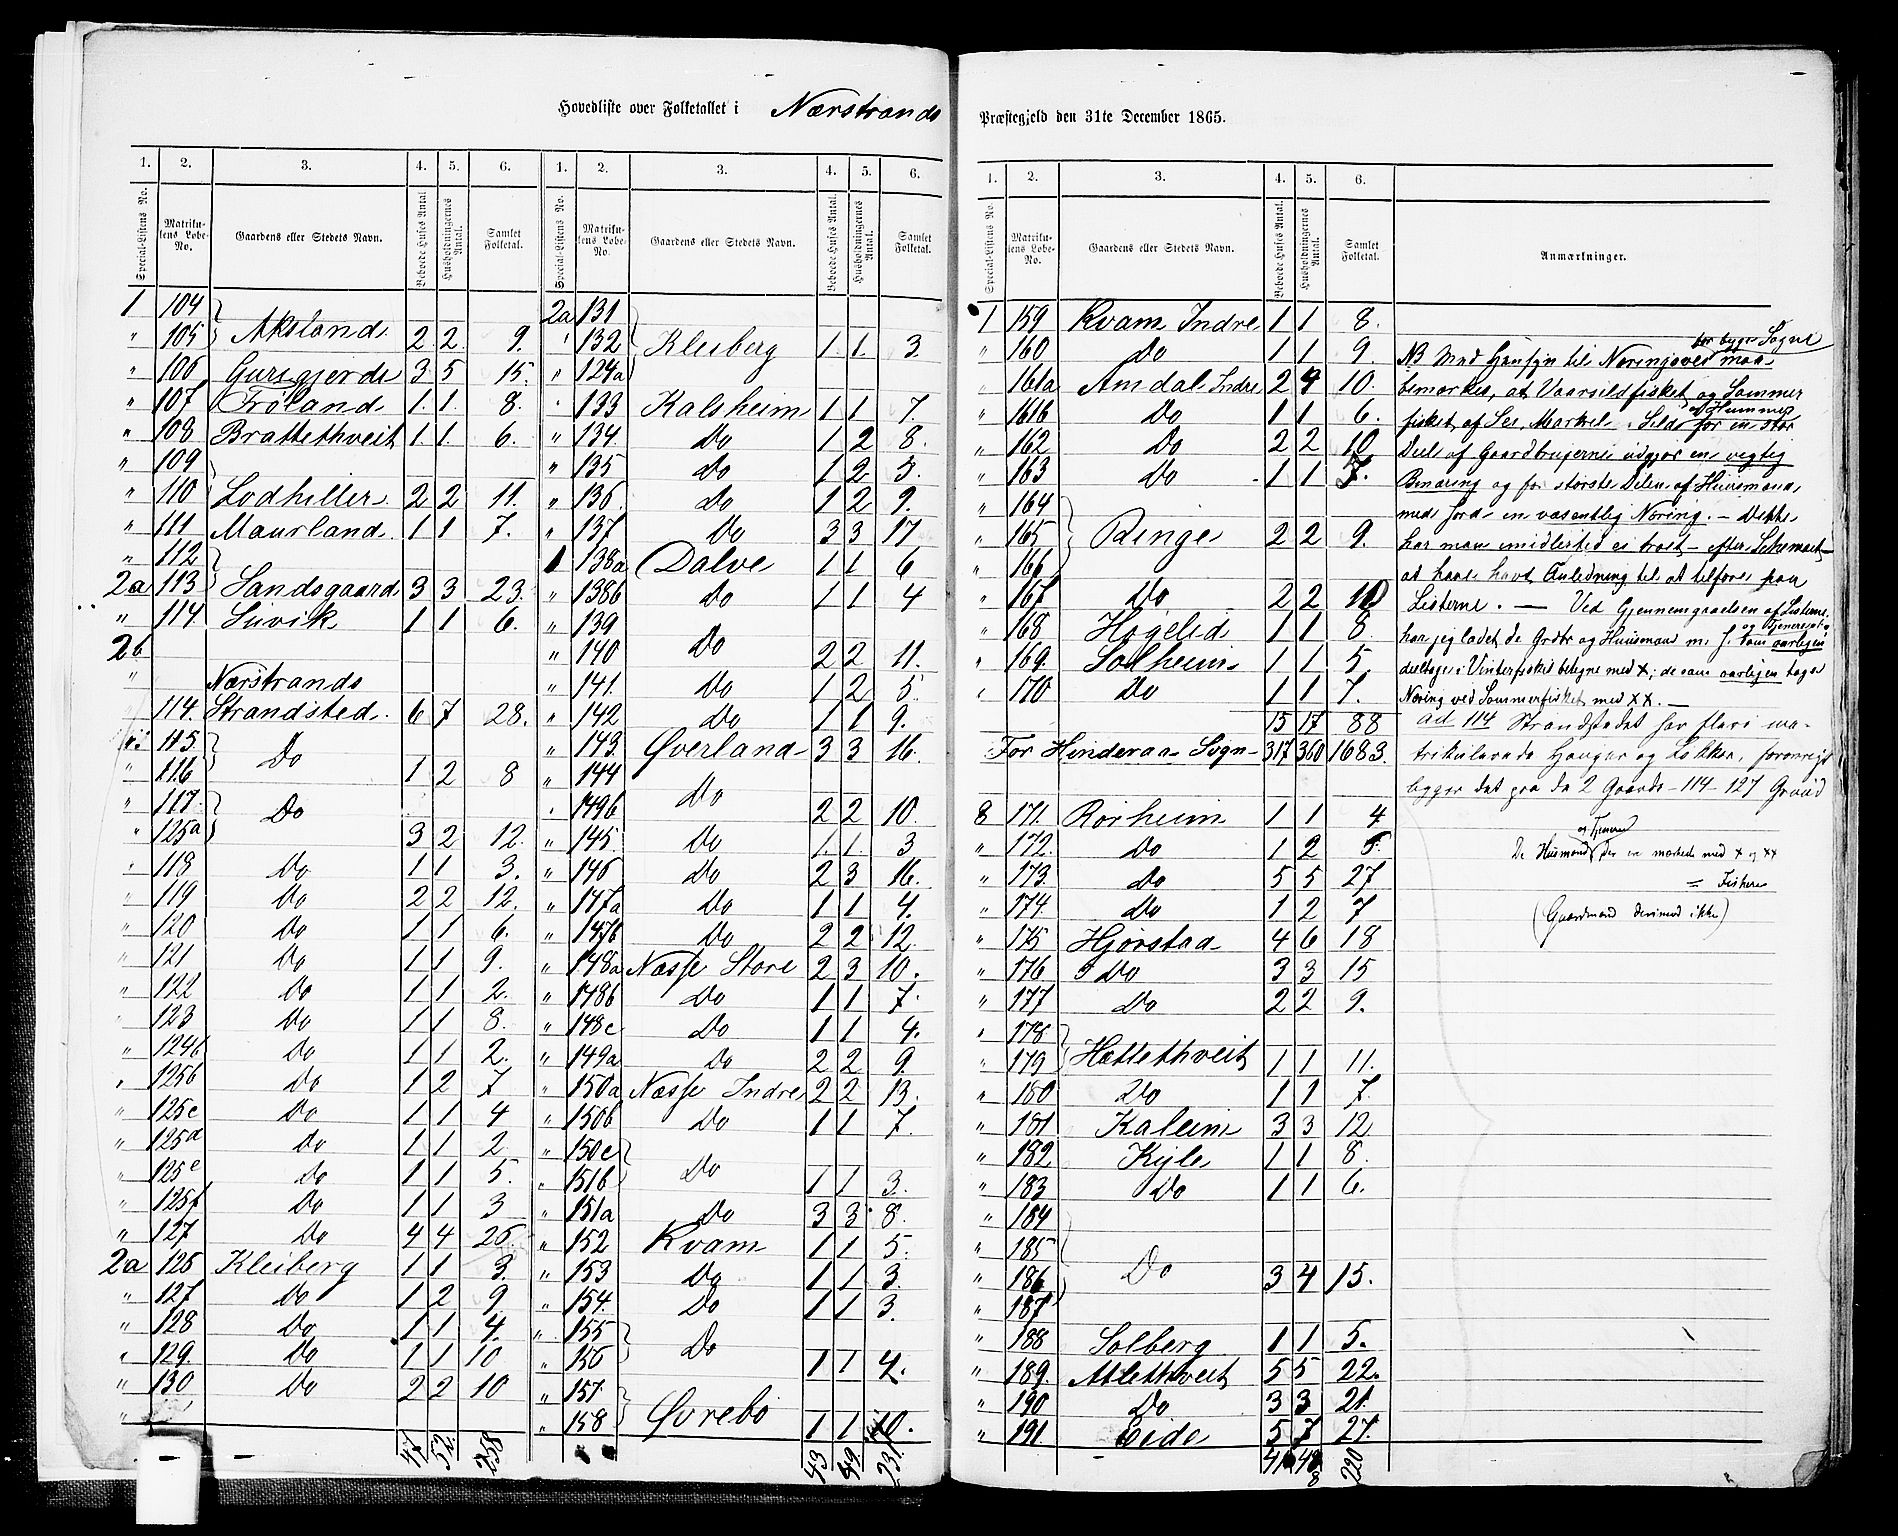 Hovedliste over Folketallet i Nærstrands Præstegjeld den 31te December 1865.
1. 2. 3. 4. 5. 6. 1. 2. 3. 4. 5. 6.
Special-Listens No. Matrikulens Løbe-No. Gaardens eller Stedets Navn. Beboede Huses Antal. Husholdningernes Antal. Samlet Folketal. Special-Listens No. Matrikulens Løbe-No. Gaardens eller Stedets Navn. Beboede Huses Antal. Husholdningernes Antal. Samlet Folketal.
1 104
" 105 Aksland 2 2 9.
" 106 Gursgjerde 3 5 15.
" 107 Frøland 1. 1. 8.
" 108 Brattethveit 1. 1. 6.
" 109
" 110 Lodhiller 2 2 11.
" 111 Maurland 1 1 7.
" 112
2a 113 Sandsgaard 3 3 23.
" 114. Siivik 1 1 6.
2b
" Nærstrands
114. Strandsted. 6 7 28.
115.
" 116 Do 1 2 8
" 117.
" 125a Do 3 2 12.
" 118 Do 1 1 3.
" 119 Do 2 2 12.
" 120 Do 1 1 6.
" 121 Do 1 1 9.
" 122 Do 1 1 2.
" 123 Do 1 1 8.
" 124b Do 1 1 2.
" 125b Do 1 2 7
" 125c Do 1 1 4
" 125d Do 1 1 2
" 125e Do 1 1 5.
" 125f Do 1 1 3
" 127 Do 4 4 26.
2a 126 Kleiberg 1 1 3.
" 127 Do 1 2 9
" 128 Do 1 1 4.
" 129. Do 1 1 10
" 130 Do 2 2 10
"
47 52. 258
2a 131
" 132 Kleiberg 1. 1. 3.
" 124a
" 133 Kalsheim 1 1 7.
" 134 Do 1 2 8.
" 135 Do 1 2 5.
" 136 Do 1 2 9.
" 137 Do 3 3 17
1 138a Dalve 1 1 6
" 138b Do 1 1 4
" 139
" 140 Do 2 2 11.
" 141. Do 1 2 5.
" 142 Do 1 1 9.
" 143. Øverland 3 3 16.
" 144
" 149b Do 2 2 10.
" 145 Do 1. 1. 3
" 146 Do 2 3 16.
" 147a Do 1 1 4.
" 147b Do 2 2 12.
" 148a Næsse Store 2 3 10.
" 148b Do 1 1 7.
" 148c Do 1 1 4.
" 149a Do 2 2 9.
" 150a Næsse Indre 2 2 13.
" 150b Do 1 1 7.
" 150c
" 151b Do 1 1 3.
" 151a Do 3 3 8.
" 152 Kvam 1 1 5.
" 153 Do 1 1 3.
" 154. Do 1 1 3.
" 155
" 156 Do 1 1 4.
" 157.
" 158 Øvrebø 1 1 10.
43 49 231
1. 2. 3. 4. 5. 6.
Special-Listens No. Matrikulens Løbe-No. Gaardens eller Stedets Navn. Beboede Huses Antal. Husholdningernes Antal. Samlet Folketal. Anmærkninger.
1 159 Kvam Indre 1 1 8.
" 160 Do 1 1 9.
" 161a Amdal Indre 2 4 10.
" 161b Do 1 1 6.
" 162 Do 2 2 10
" 163 Do 1 1 7.
" 164
" 165 Ringe 2 2 9.
" 166
" 167 Do 2 2 10
" 168 Høgelid 1 1 8
" 169. Solheim 1 1 5.
" 170 Do 1 1 7.
15 17 88
For Hinderaa Sogn 317 360 1683.
8 171. Rørheim 1 1 4
" 172. Do 1 2 5.
" 173. Do 5 5 27
" 174. Do 1 2 7
" 175 Hjørstad 4 6 18
" 176. Do 3 3 15
" 177 Do 2 2 9.
" 178.
" 179 Hættethveit 1 1 11.
" 180 Do 1 1 7.
" 181 Kaleim 3 3 12
" 182 Kyle 1 1 8.
" 183 Do 1 1 6.
" 184
" 185
" 186 Do 3 4 15.
" 187
" 188 Solberg 1 1 5.
" 189. Atlethveit 5 5 22.
" 190 Do 3 3 21
" 191. Eide 5 7 27.
41 48 220
for begge Sogne
NB Med Hensyn til Næringsvei maa
bemærkes, at Vaarsildfisket og Sommer
og Hummer
fisket af Sei, Markrel, Sild for en stor
Deel af Gaardbrugerne udgjør en vigtig
Binæring og for største Delen af Huusmænd
med Jord en væsentlig Næring. — Dette
har man imidlertid ei troet efter Schemaet
at have havt Anledning til at tilføre paa
Listerne. — Ved Gjennemgaaelsen af Listerne
og Tjenere
har jeg ladet de Grdbr og Huusmænd m. J. som aarligen
deeltage i Vinterfisket betegne med x; de som aarligen tage
Næring ved Sommerfisket med xx. —
ad 114 Strandstedet har flere ma-
trikulerede Hauger og Løkker, forøvrigt
ligger det paa de 2 Gaarde 114 - 127 Grund
og Tjenere
De Husmænd der er mærkede med x og xx
= Fiskere
(Gaardmænd derimod ikke)